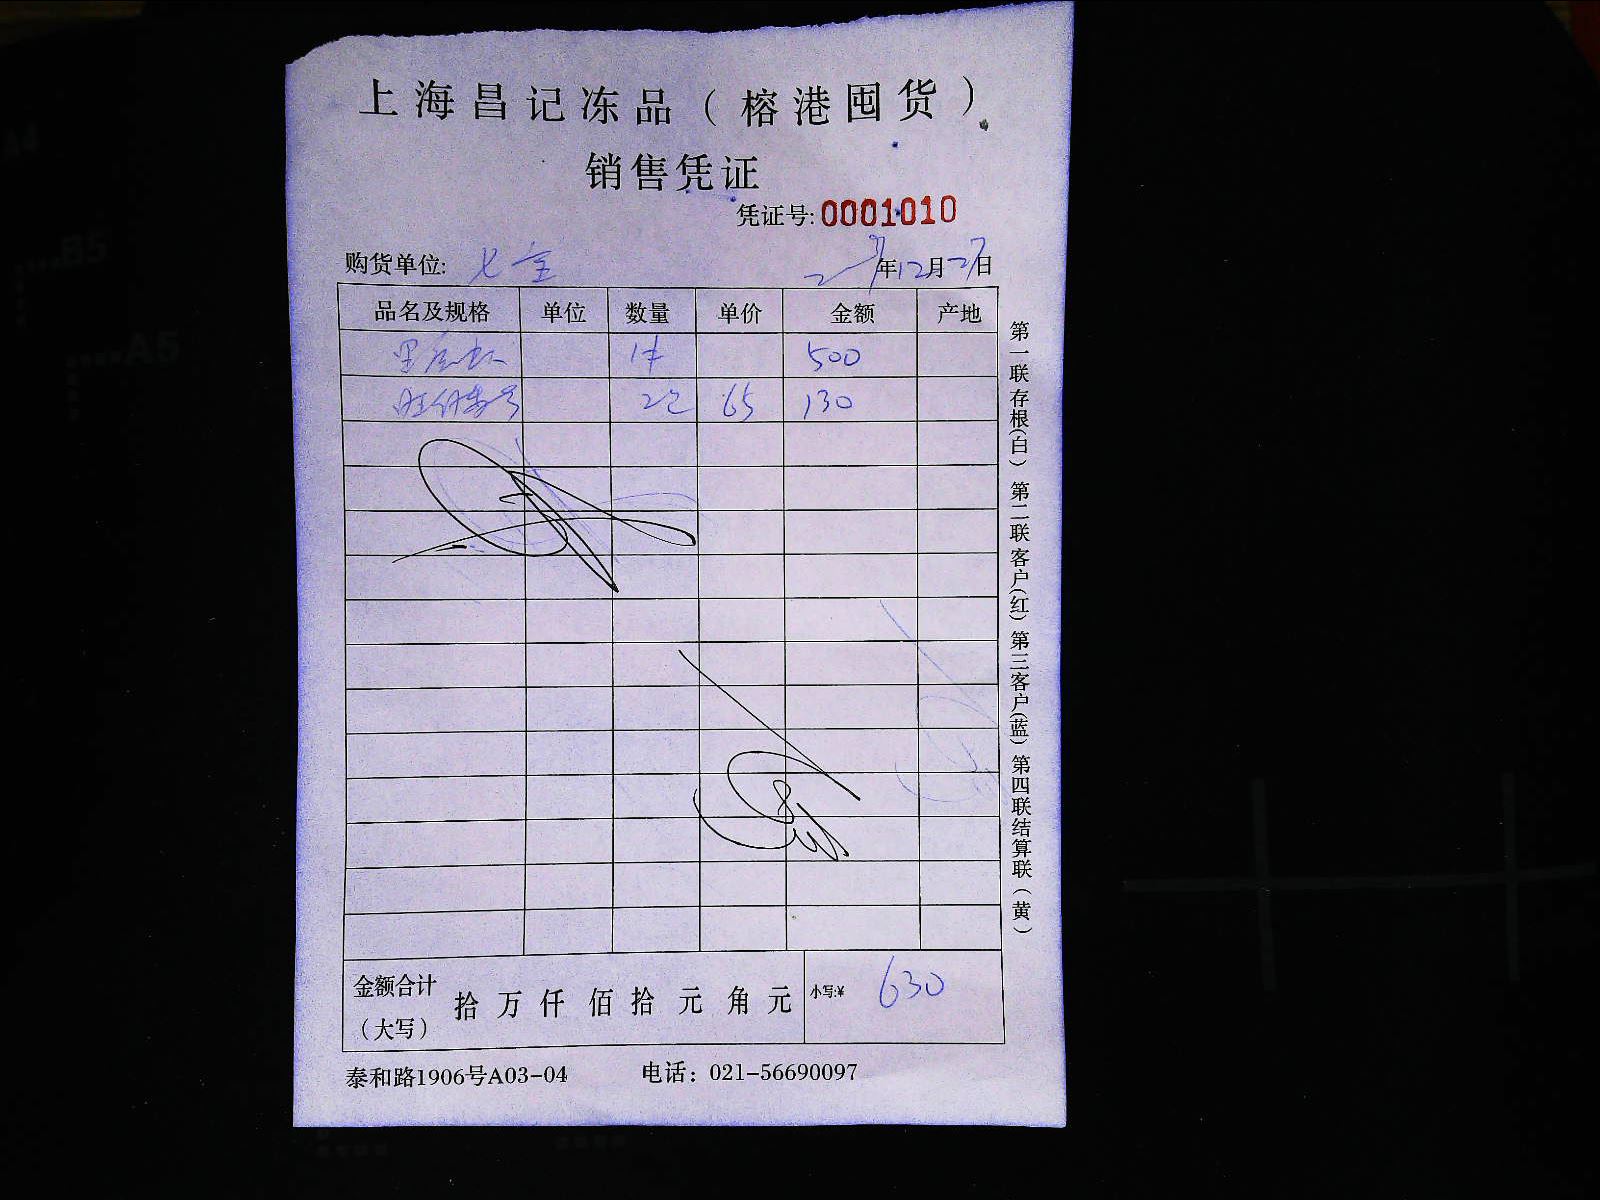 上海昌记冻品（榕港囤货）
销售凭证
凭证号:0001010
购货单位: 七宝 年12月27日
品名及规格 单位 数量 单价 金额 产地
黑虎虾 1件 500
2包 65 130
金额合计（大写） 拾 万 仟 佰 拾 元 角 元 小写:¥ 630
泰和路1906号A03-04 电话：021-56690097
第一联存根(白) 第二联客户(红) 第三客户(蓝) 第四联结算联(黄)
A4
B5
A5